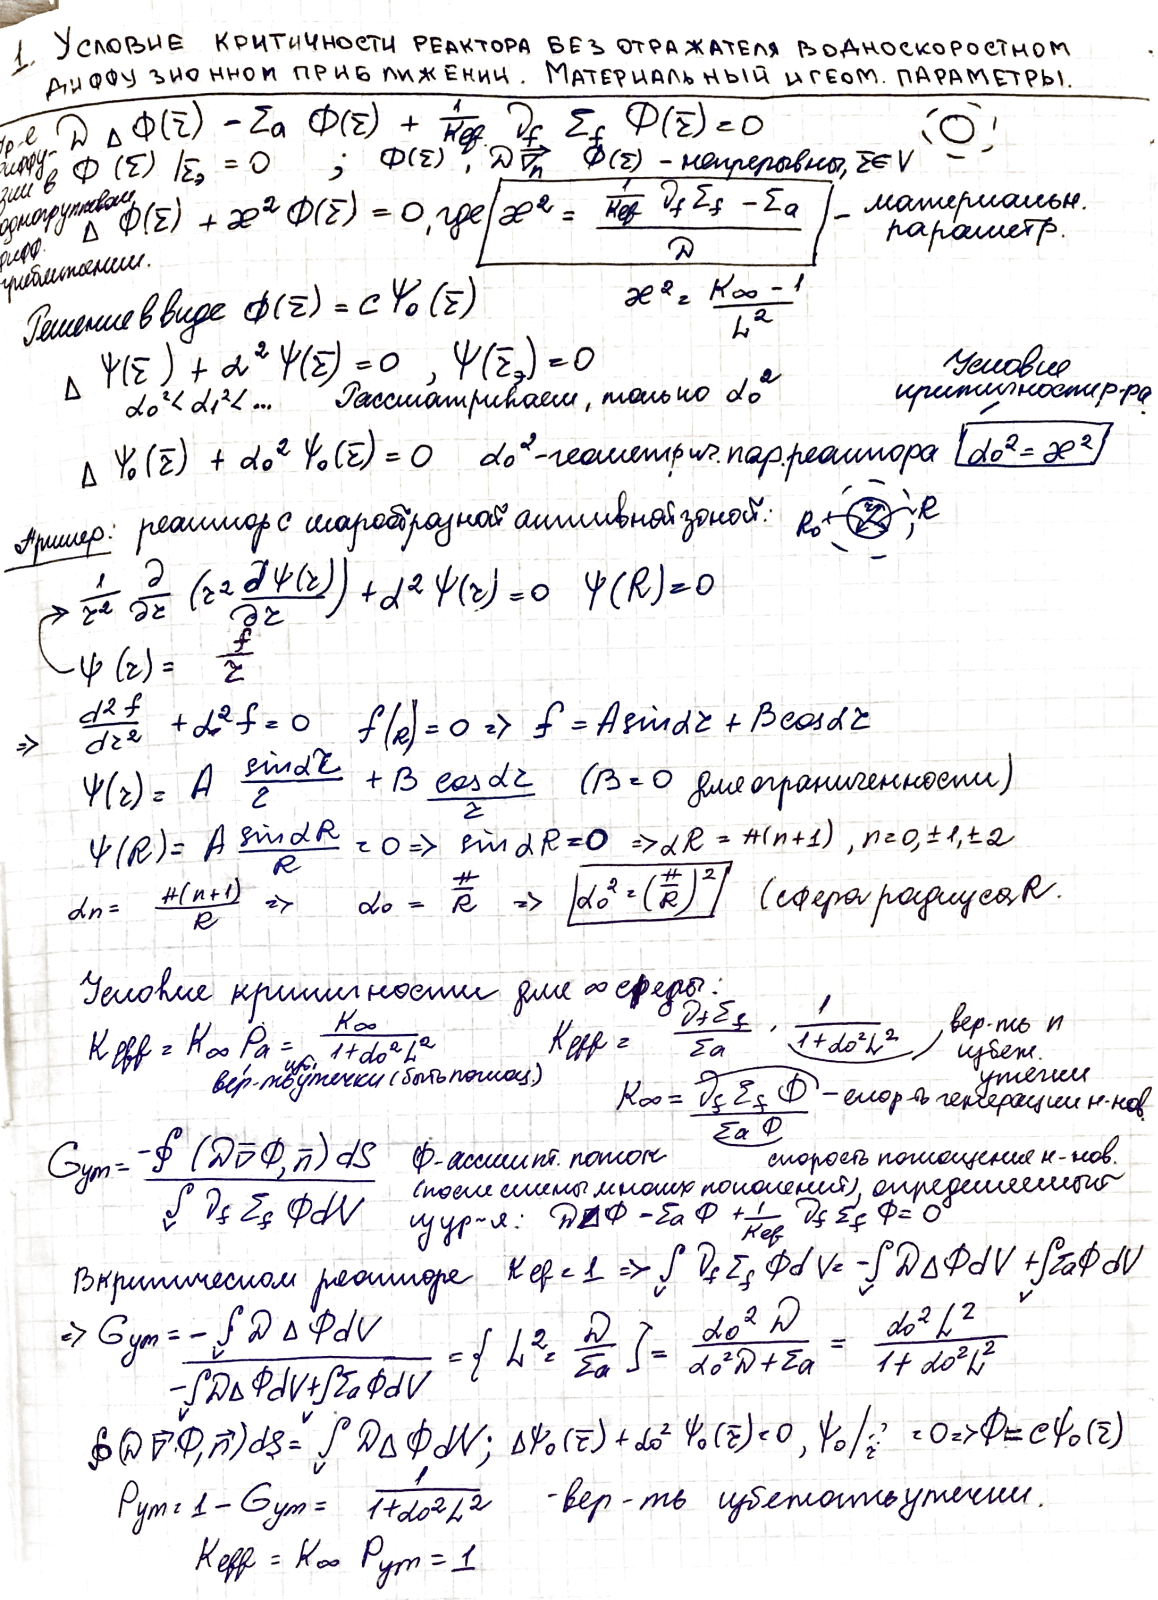 1. Условие критичности реактора без отражателя в односкоростном
диффузионном приближении. Материальный и геом. параметры.
Ур-е диффузии в одногрупповом дифф. приближении.
D Δ Φ(r̄) − Σa Φ(r̄) + 1/Kef ν_f Σ_f Φ(r̄) = 0
Φ(r̄)|r̄э = 0 ; Φ(r̄), D∇n Φ(r̄) − непрерывны, r̄∈V
Δ Φ(r̄) + æ² Φ(r̄) = 0, где æ² = (1/Kef ν_f Σ_f − Σa)/D − материальн. параметр.
Решение в виде Φ(r̄) = c Ψ₀(r̄) æ² = (K∞ − 1)/L²
Δ Ψ(r̄) + α² Ψ(r̄) = 0, Ψ(r̄э) = 0
α₀² < α₁² < ... Рассматриваем, только α₀² Условие критичности р-ра
Δ Ψ₀(r̄) + α₀² Ψ₀(r̄) = 0 α₀² − геометрич. пар. реактора α₀² = æ²
Пример: реактор с шарообразной активной зоной: R₀ r R
1/r² ∂/∂r (r² ∂Ψ(r)/∂r) + α² Ψ(r) = 0 Ψ(R) = 0
Ψ(r) = f/r
⇒ d²f/dr² + α²f = 0 f(R) = 0 ⇒ f = A sinαr + B cosαr
Ψ(r) = A sinαr/r + B cosαr/r (B = 0 для ограниченности)
Ψ(R) = A sinαR/R = 0 ⇒ sinαR = 0 ⇒ αR = π(n+1), n = 0, ±1, ±2
αn = π(n+1)/R ⇒ α₀ = π/R ⇒ α₀² = (π/R)² (сфера радиуса R.
Условие критичности для ∞ среды:
Keff = K∞ Pa = K∞/(1+α₀²L²) Keff = ν_fΣ_f/Σa · 1/(1+α₀²L²), вер-ть n избеж. утечки
вер-ть изб. утечки (быть поглощ.)
K∞ = ν_f Σ_f Φ/Σa Φ − скор-ть генерации н-нов
скорость поглощения н-нов.
Gут = −∮(D∇Φ, n̄)dS / ∫_V ν_f Σ_f Φ dV Φ − ассимпт. поток
(после смены многих поколений), определяемый
из ур-я: DΔΦ − Σa Φ + 1/Kef ν_f Σ_f Φ = 0
В критическом реакторе Kef = 1 ⇒ ∫_V ν_f Σ_f Φ dV = −∫_V DΔΦdV + ∫_V ΣaΦdV
⇒ Gут = −∫_V D Δ ΦdV / (−∫_V DΔΦdV + ∫_V ΣaΦdV) = {L² = D/Σa} = α₀² D/(α₀²D + Σa) = α₀² L²/(1 + α₀²L²)
∮(D∇Φ, n̄)dS = ∫_V DΔΦdV; ΔΨ₀(r̄) + α₀² Ψ₀(r̄) = 0, Ψ₀| = 0 ⇒ Φ = cΨ₀(r̄)
Pут = 1 − Gут = 1/(1+α₀²L²) - вер-ть избежать утечки.
Keff = K∞ Pут = 1